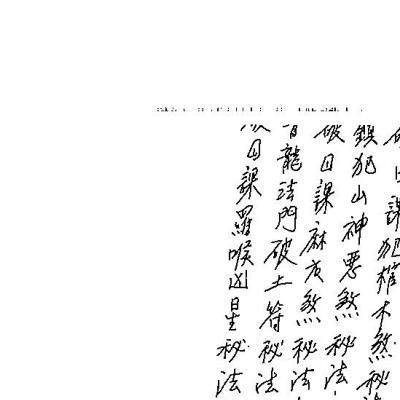 日課犯權木煞秘
鎖犯山神惡煞秘法
破日課麻衣煞秘法
龍法門破土符秘法
日課羅喉凶星秘法